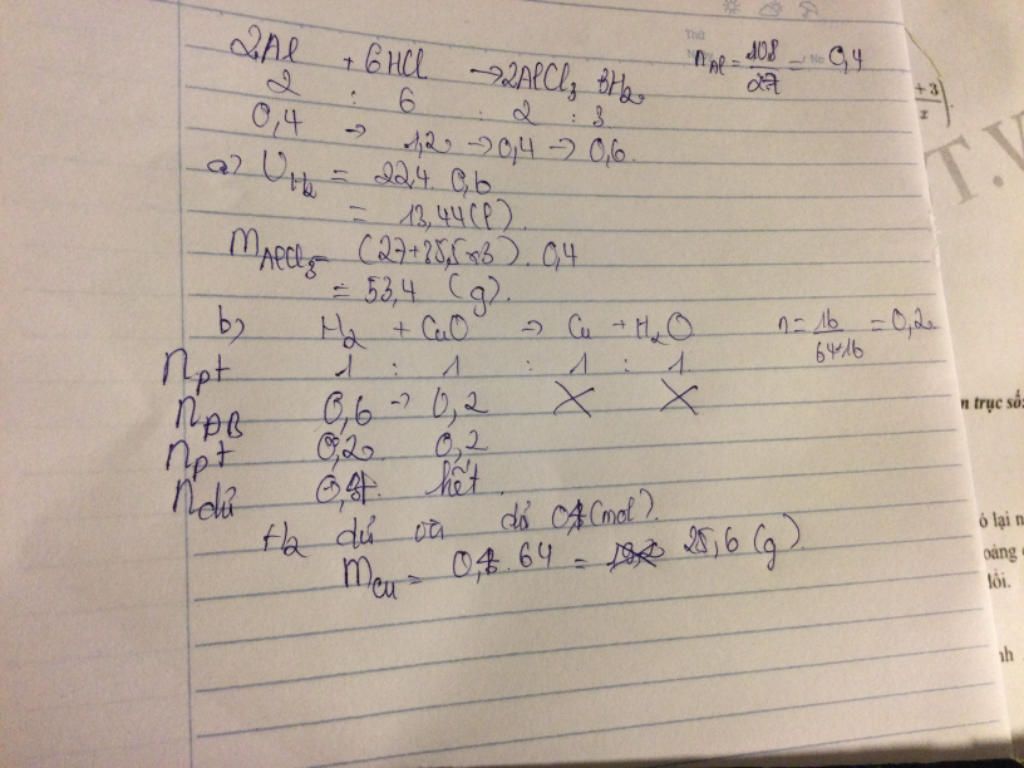 2Al + 6HCl → 2AlCl₃ 3H₂
n_Al = 10,8/27 = 0,4
2 : 6 : 2 : 3
0,4 → 1,2 → 0,4 → 0,6
a) V_H₂ = 22,4. 0,6
= 13,44 (l).
m_AlCl₃ = (27+35,5×3). 0,4
= 53,4 (g).
b) H₂ + CuO → Cu + H₂O
n = 16/64+16 = 0,2
n_pt 1 : 1 : 1 : 1
n_ĐB 0,6 → 0,2 X X
n_pt 0,2 0,2
n_dư 0,4 hết
H₂ dư và dư 0,4 (mol).
m_Cu = 0,4. 64 = 25,6 (g).
+ 3
x
T.V
n trục số:
ó lại n
oảng
nh